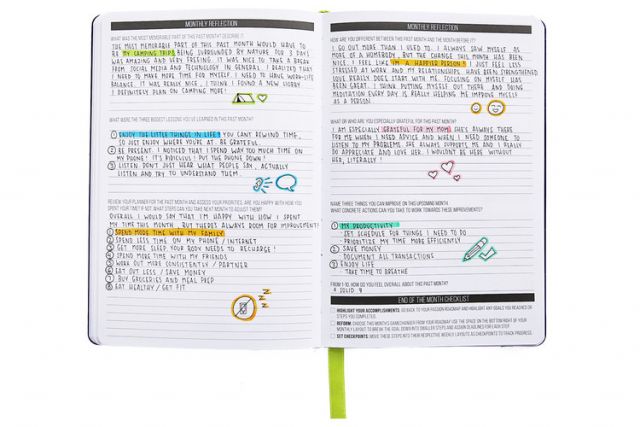 MONTHLY REFLECTION
WHAT WAS THE MOST MEMORABLE PART OF THIS PAST MONTH? DESCRIBE IT.
THE MOST MEMORABLE PART OF THIS PAST MONTH WOULD HAVE TO
BE MY CAMPING TRIP! BEING SURROUNDED BY NATURE FOR 3 DAYS
WAS AMAZING AND VERY FREEING. IT WAS NICE TO TAKE A BREAK
FROM SOCIAL MEDIA AND TECHNOLOGY IN GENERAL. I REALIZED THAT
I NEED TO MAKE MORE TIME FOR MYSELF. I NEED TO HAVE WORK-LIFE
BALANCE. IT WAS REALLY NICE. I THINK I FOUND A NEW HOBBY.
I DEFINITELY PLAN ON CAMPING MORE!
WHAT WERE THE THREE BIGGEST LESSONS YOU'VE LEARNED IN THIS PAST MONTH?
1 ENJOY THE LITTLE THINGS IN LIFE! YOU CAN'T REWIND TIME,
SO JUST ENJOY WHERE YOU'RE AT. BE GRATEFUL.
2 BE PRESENT. I NOTICED THAT I SPEND WAY TOO MUCH TIME ON
MY PHONE! IT'S RIDICULUS! PUT THE PHONE DOWN!
3 LISTEN. DON'T JUST HEAR WHAT PEOPLE SAY, ACTUALLY
LISTEN AND TRY TO UNDERSTAND THEM.
REVIEW YOUR PLANNER FOR THE PAST MONTH AND ASSESS YOUR PRIORITIES. ARE YOU HAPPY WITH HOW YOU
SPENT YOUR TIME? IF NOT, WHAT STEPS CAN YOU TAKE NEXT MONTH TO ADJUST THEM?
OVERALL I WOULD SAY THAT I'M HAPPY WITH HOW I SPENT
MY TIME THIS MONTH, BUT THERE'S ALWAYS ROOM FOR IMPROVEMENT!
1 SPEND MORE TIME WITH MY FAMILY
2 SPEND LESS TIME ON MY PHONE / INTERNET
3 GET MORE SLEEP YOUR BODY NEEDS TO RECHARGE!
4 SPEND MORE TIME WITH MY FRIENDS
5 WORK OUT MORE CONSISTENTLY / PARTNER
6 EAT OUT LESS / SAVE MONEY
7 BUY GROCERIES AND MEAL PREP
8 EAT HEALTHY / GET FIT
MONTHLY REFLECTION
HOW ARE YOU DIFFERENT BETWEEN THIS PAST MONTH AND THE MONTH BEFORE IT?
I GO OUT MORE THAN I USED TO. I ALWAYS SAW MYSELF AS
MORE OF A HOMEBODY, BUT THE CHANGE THIS MONTH HAS BEEN
NICE. I FEEL LIKE I'M A HAPPIER PERSON! I JUST FEEL LESS
STRESSED AT WORK AND MY RELATIONSHIPS HAVE BEEN STRENGTHENED.
LOVE REALLY DOES START WITH ME. FOCUSING ON MYSELF HAS
BEEN GREAT. I THINK PUTTING MYSELF OUT THERE AND DOING
MEDITATION EVERY DAY IS REALLY HELPING ME IMPROVE MYSELF
AS A PERSON.
WHAT OR WHO ARE YOU ESPECIALLY GRATEFUL FOR THIS PAST MONTH?
I AM ESPECIALLY GRATEFUL FOR MY MOM! SHE'S ALWAYS THERE
FOR ME WHEN I NEED ADVICE AND WHEN I NEED SOMEONE TO
LISTEN TO MY PROBLEMS. SHE ALWAYS SUPPORTS ME AND I REALLY
DO APPRECIATE AND LOVE HER. I WOULDN'T BE HERE WITHOUT
HER, LITERALLY!
NAME THREE THINGS YOU CAN IMPROVE ON THIS UPCOMING MONTH.
WHAT CONCRETE ACTIONS CAN YOU TAKE TO WORK TOWARDS THESE IMPROVEMENTS?
1 MY PRODUCTIVITY
· SET SCHEDULE FOR THINGS I NEED TO DO
· PRIORITIZE MY TIME MORE EFFICIENTLY
2 SAVE MONEY
· DOCUMENT ALL TRANSACTIONS
3 ENJOY LIFE
· TAKE TIME TO BREATHE
FROM 1-10, HOW DO YOU FEEL OVERALL ABOUT THIS PAST MONTH?
A SOLID 9
END OF THE MONTH CHECKLIST
HIGHLIGHT YOUR ACCOMPLISHMENTS: GO BACK TO YOUR PASSION ROADMAP AND HIGHLIGHT ANY GOALS YOU REACHED OR
STEPS YOU COMPLETED.
REFORM: CHOOSE THIS MONTH'S GAMECHANGER FROM YOUR ROADMAP. USE THE SPACE ON THE BOTTOM RIGHT OF YOUR
MONTHLY LAYOUT TO BREAK THE GOAL DOWN INTO SMALLER STEPS AND ASSIGN DEADLINES FOR EACH STEP.
SET CHECKPOINTS: MOVE THESE STEPS INTO THEIR RESPECTIVE WEEKLY LAYOUTS AS CHECKPOINTS TO TRACK PROGRESS.